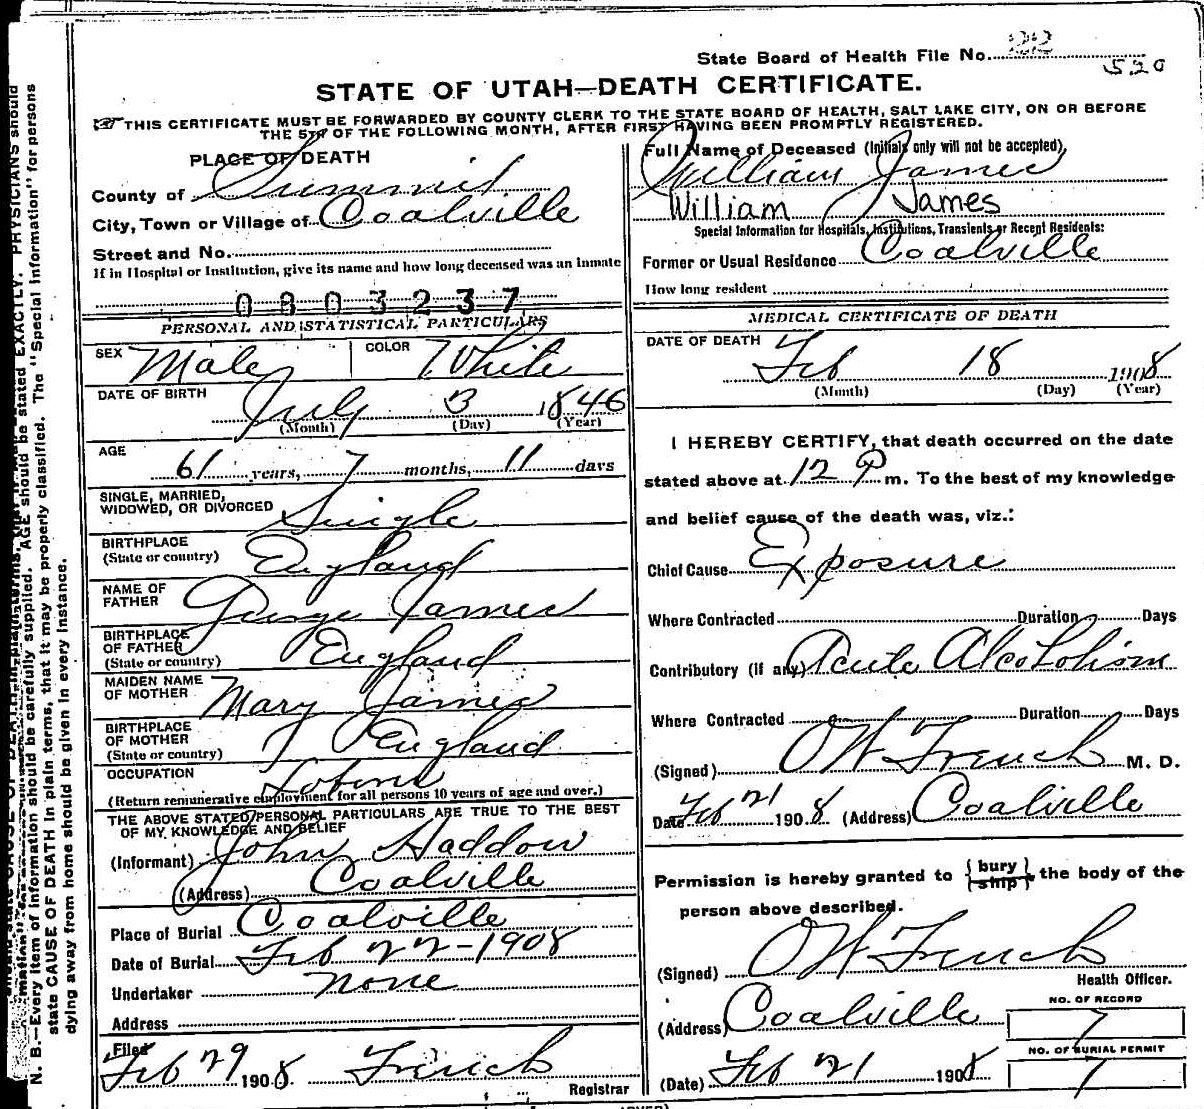 State Board of Health File No. 22
520
STATE OF UTAH—DEATH CERTIFICATE.
THIS CERTIFICATE MUST BE FORWARDED BY COUNTY CLERK TO THE STATE BOARD OF HEALTH, SALT LAKE CITY, ON OR BEFORE
THE 5TH OF THE FOLLOWING MONTH, AFTER FIRST HAVING BEEN PROMPTLY REGISTERED.
PLACE OF DEATH
County of Summit
City, Town or Village of Coalville
Street and No.
If in Hospital or Institution, give its name and how long deceased was an inmate
0803237
PERSONAL AND STATISTICAL PARTICULARS
SEX Male COLOR White
DATE OF BIRTH
July 3 1846
(Month) (Day) (Year)
AGE
61 years, 7 months, 11 days
SINGLE, MARRIED,
WIDOWED, OR DIVORCED Single
BIRTHPLACE
(State or country) England
NAME OF
FATHER George James
BIRTHPLACE
OF FATHER
(State or country) England
MAIDEN NAME
OF MOTHER Mary James
BIRTHPLACE
OF MOTHER
(State or country) England
OCCUPATION
(Return remunerative employment for all persons 10 years of age and over.)
THE ABOVE STATED PERSONAL PARTICULARS ARE TRUE TO THE BEST
OF MY KNOWLEDGE AND BELIEF
(Informant) John Haddow
(Address) Coalville
Place of Burial Coalville
Date of Burial Feb 22-1908
Undertaker none
Address
Filed
Feb 29 1908 French
Registrar
Full Name of Deceased (Initials only will not be accepted),
William James
William James
Special Information for Hospitals, Institutions, Transients or Recent Residents:
Former or Usual Residence Coalville
How long resident
MEDICAL CERTIFICATE OF DEATH
DATE OF DEATH
Feb 18 1908
(Month) (Day) (Year)
I HEREBY CERTIFY, that death occurred on the date
stated above at 12 P m. To the best of my knowledge
and belief cause of the death was, viz.:
Chief Cause Exposure
Where Contracted Duration Days
Contributory (if any) Acute Alcoholism
Where Contracted Duration Days
(Signed) O W French M. D.
Date Feb 21 1908 (Address) Coalville
Permission is hereby granted to { bury / ship } the body of the
person above described.
(Signed) O W French
Health Officer.
NO. OF RECORD
(Address) Coalville 7
NO. OF BURIAL PERMIT
(Date) Feb 21 1908 7
N. B.—Every item of information should be carefully supplied. AGE should be stated EXACTLY. PHYSICIANS should
state CAUSE OF DEATH in plain terms, that it may be properly classified. The "Special Information" for persons
dying away from home should be given in every instance.